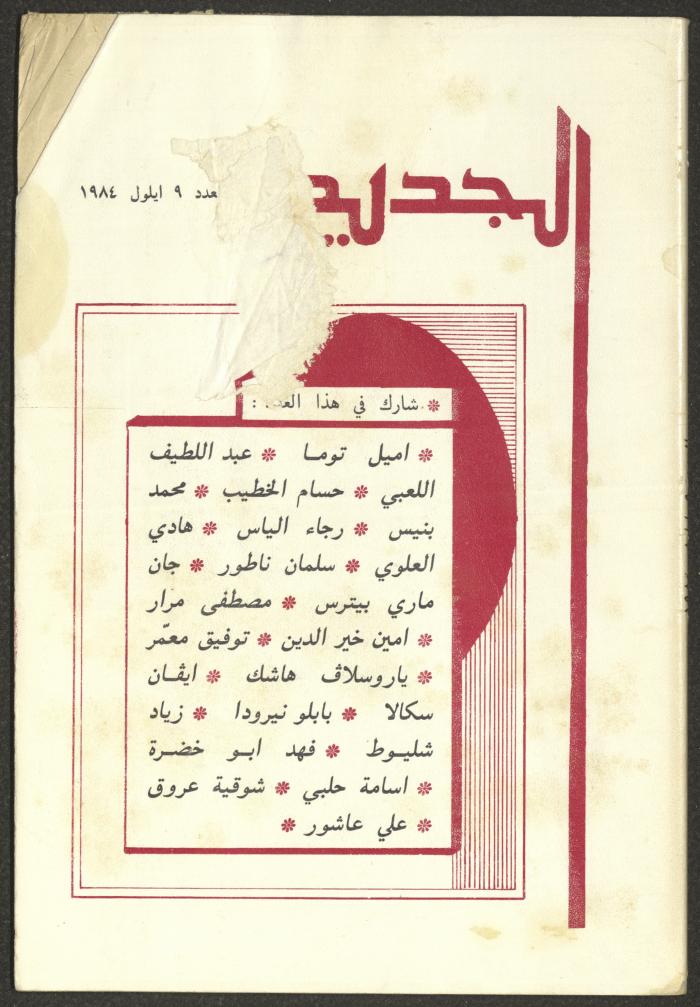 الجديد
عدد ٩ ايلول ١٩٨٤
* شارك في هذا العدد :
* اميل تومـا * عبد اللطيف
اللعبي * حسام الخطيب * محمد
بنيس * رجاء الياس * هادي
العلوي * سلمان ناطور * جان
ماري بيترس * مصطفى مرار
* امين خير الدين * توفيق معمّر
* ياروسلاڤ هاشك * ايڤـان
سكالا * بابلو نيرودا * زياد
شليـوط * فهد ابـو خضـرة
* اسامة حلبي * شوقية عروق
* علي عاشور *